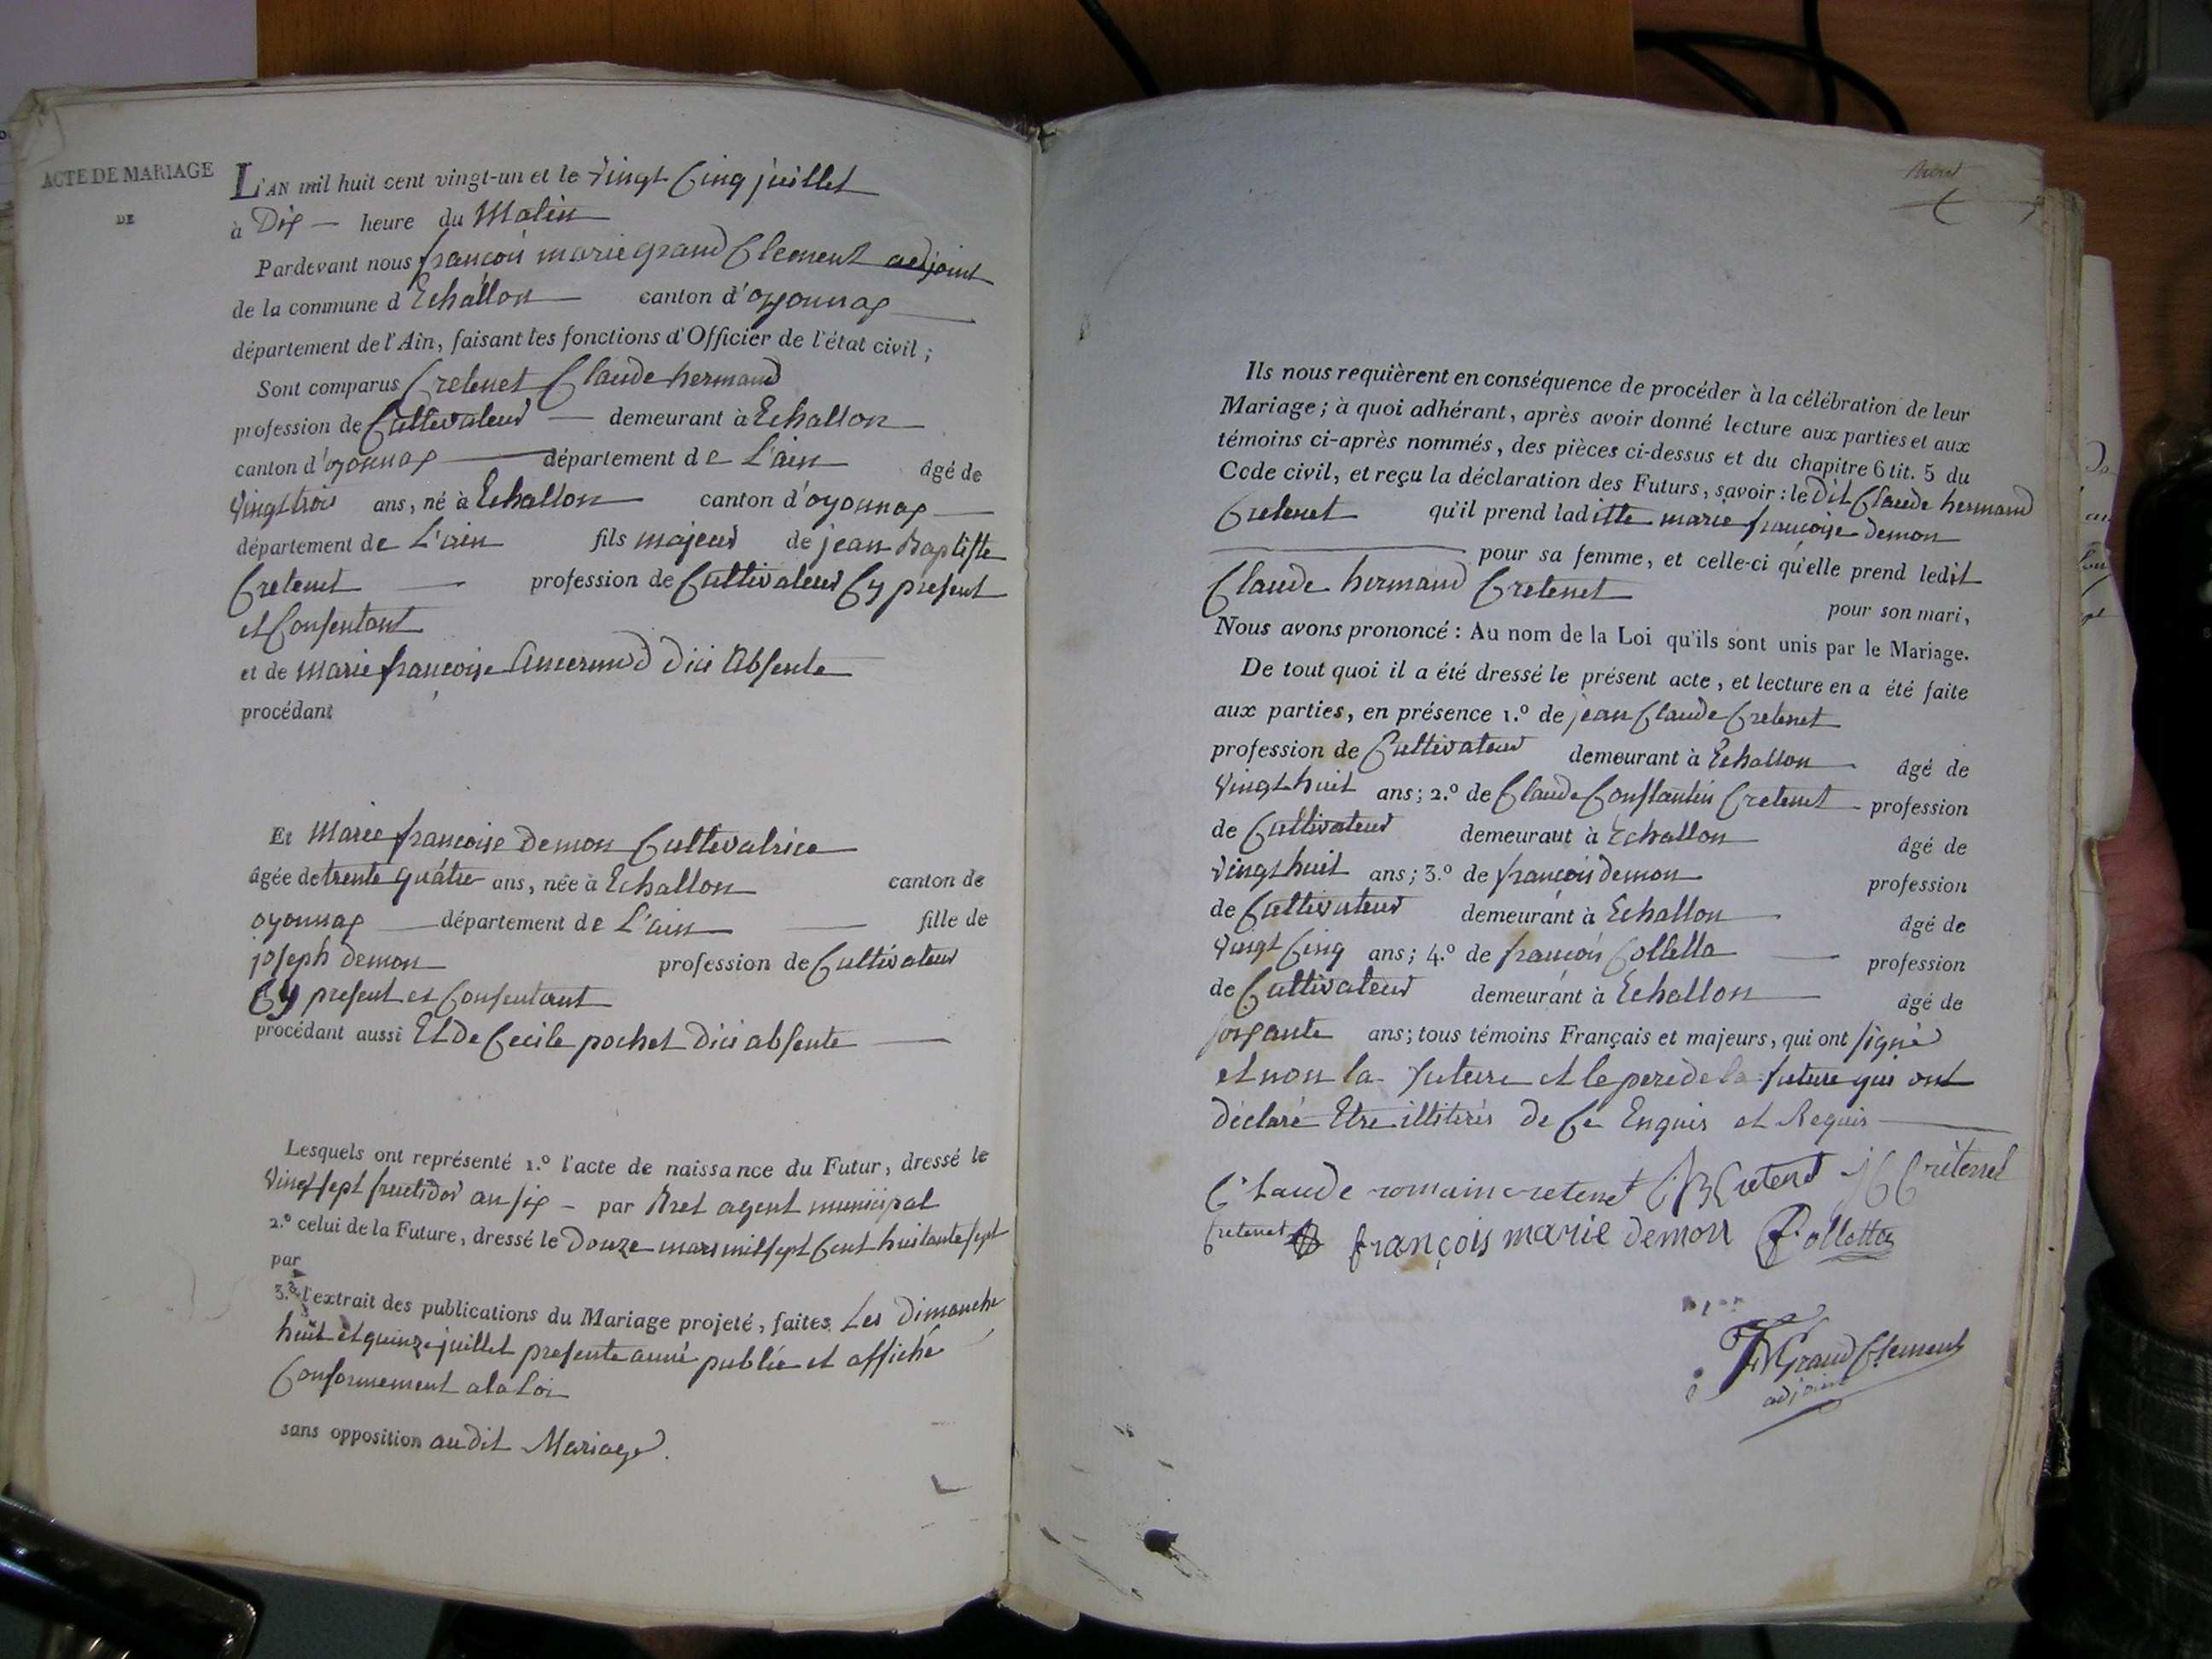 ACTE DE MARIAGE
DE
L'AN mil huit cent vingt-un et le vingt Cinq juillet
à Dix — heure du Matin
Pardevant nous françois marie grand Clement adjoint
de la commune d Echallon canton d'oyonnax
département de l'Ain, faisant les fonctions d'Officier de l'état civil ;
Sont comparus Cretenet Claude hermand
profession de Cultivateur — demeurant à Echallon
canton d'oyonnax département de L'ain âgé de
vingt trois ans, né à Echallon canton d'oyonnax
département de L'ain fils majeur de jean Baptiste
Cretenet — profession de Cultivateur Cy present
et Consentant
et de marie françoise dici Absente
procédant
Et Marie françoise Demon Cultivatrice
âgée de trente quátre ans, née à Echallon canton de
oyonnax département de L'ain fille de
joseph demon profession de Cultivateur
Cy present et Consentant
procédant aussi Et De Cecile pochet Dici absente
Lesquels ont représenté 1.º l'acte de naissance du Futur, dressé le
vingt sept fructidor an six — par Bret agent municipal
2.º celui de la Future, dressé le Douze mars mil sept Cent huitante sept
par
3.º l'extrait des publications du Mariage projeté, faites Les Dimanche
huit et quinze juillet presente anné publié et affiché
Conformement a la Loi
sans opposition au dit Mariage.
Ils nous requièrent en conséquence de procéder à la célébration de leur
Mariage ; à quoi adhérant, après avoir donné lecture aux parties et aux
témoins ci-après nommés, des pièces ci-dessus et du chapitre 6 tit. 5 du
Code civil, et reçu la déclaration des Futurs, savoir : le Dit Claude hermand
Cretenet qu'il prend laditte marie françoise demon
pour sa femme, et celle-ci qu'elle prend ledit
Claude hermand Cretenet pour son mari,
Nous avons prononcé : Au nom de la Loi qu'ils sont unis par le Mariage.
De tout quoi il a été dressé le présent acte, et lecture en a été faite
aux parties, en présence 1.º de jean Claude Cretenet
profession de Cultivateur demeurant à Echallon âgé de
vingt huit ans ; 2.º de Claude Constantin Cretenet profession
de Cultivateur demeurant à Echallon âgé de
vingt huit ans ; 3.º de françois demon profession
de Cultivateur demeurant à Echallon âgé de
vingt Cinq ans ; 4.º de françois Colletta profession
de Cultivateur demeurant à Echallon âgé de
soixante ans ; tous témoins Français et majeurs, qui ont signé
et non la future et le pere de la future qui ont
déclaré Etre illitérés de Ce Enquis et Requis
Claude romain cretenet JB Cretenet JC Crétenet
Cretenet françois marie demon F. Colletta
FM Grand Clement
adjoint